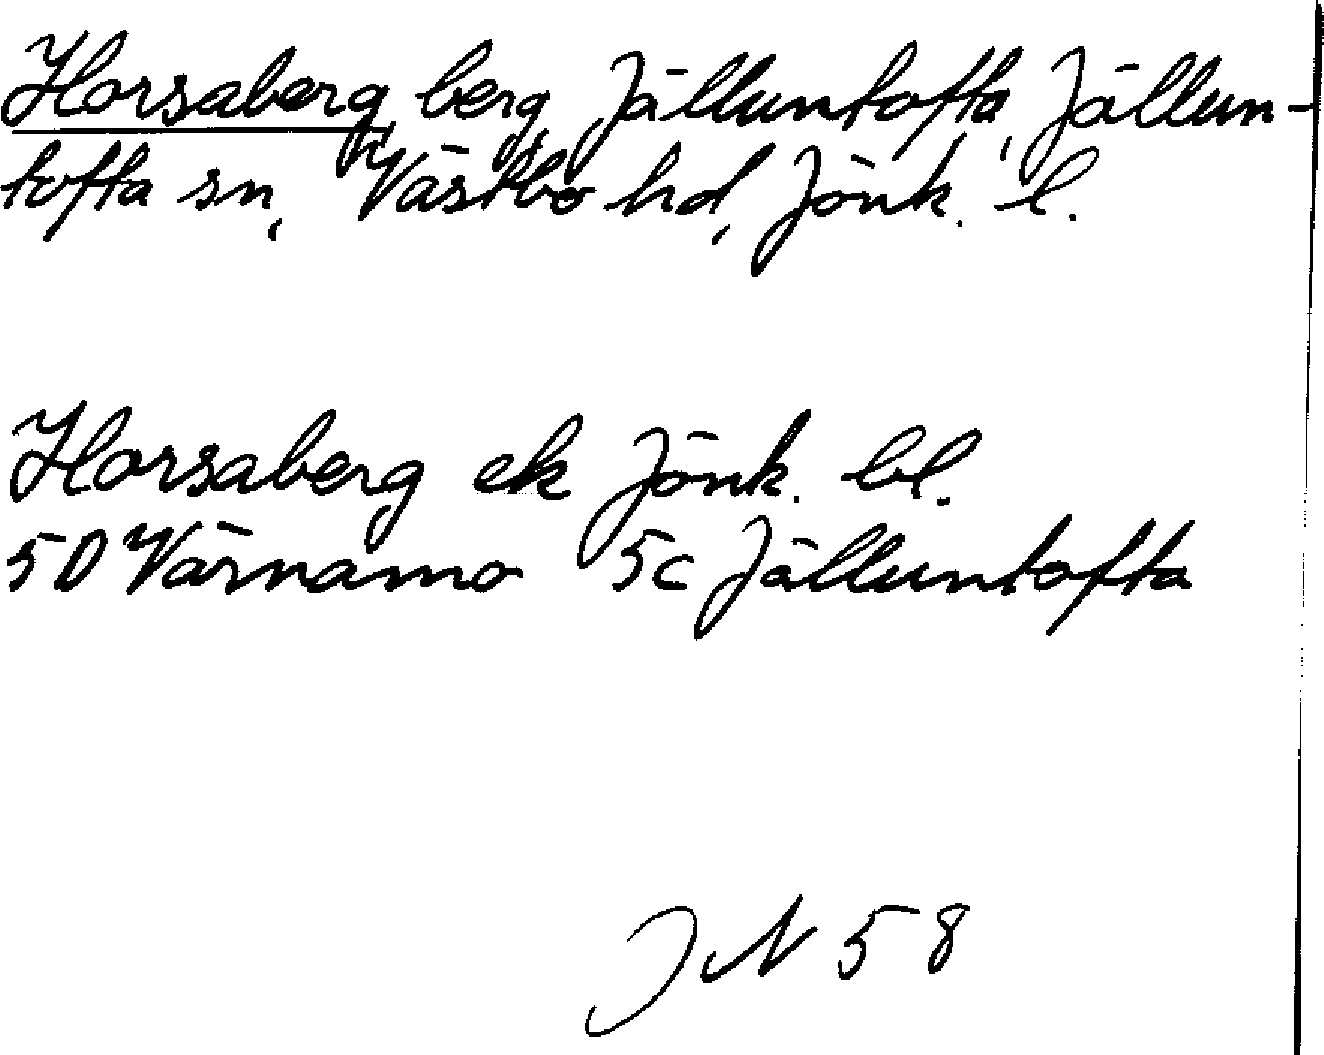 Horsaberg, berg, Jälluntofta, Jällun-
tofta sn, Västbo hd, Jönk. l.
Horsaberg ek Jönk. bl.
5D Värnamo 5c Jälluntofta
JN 58